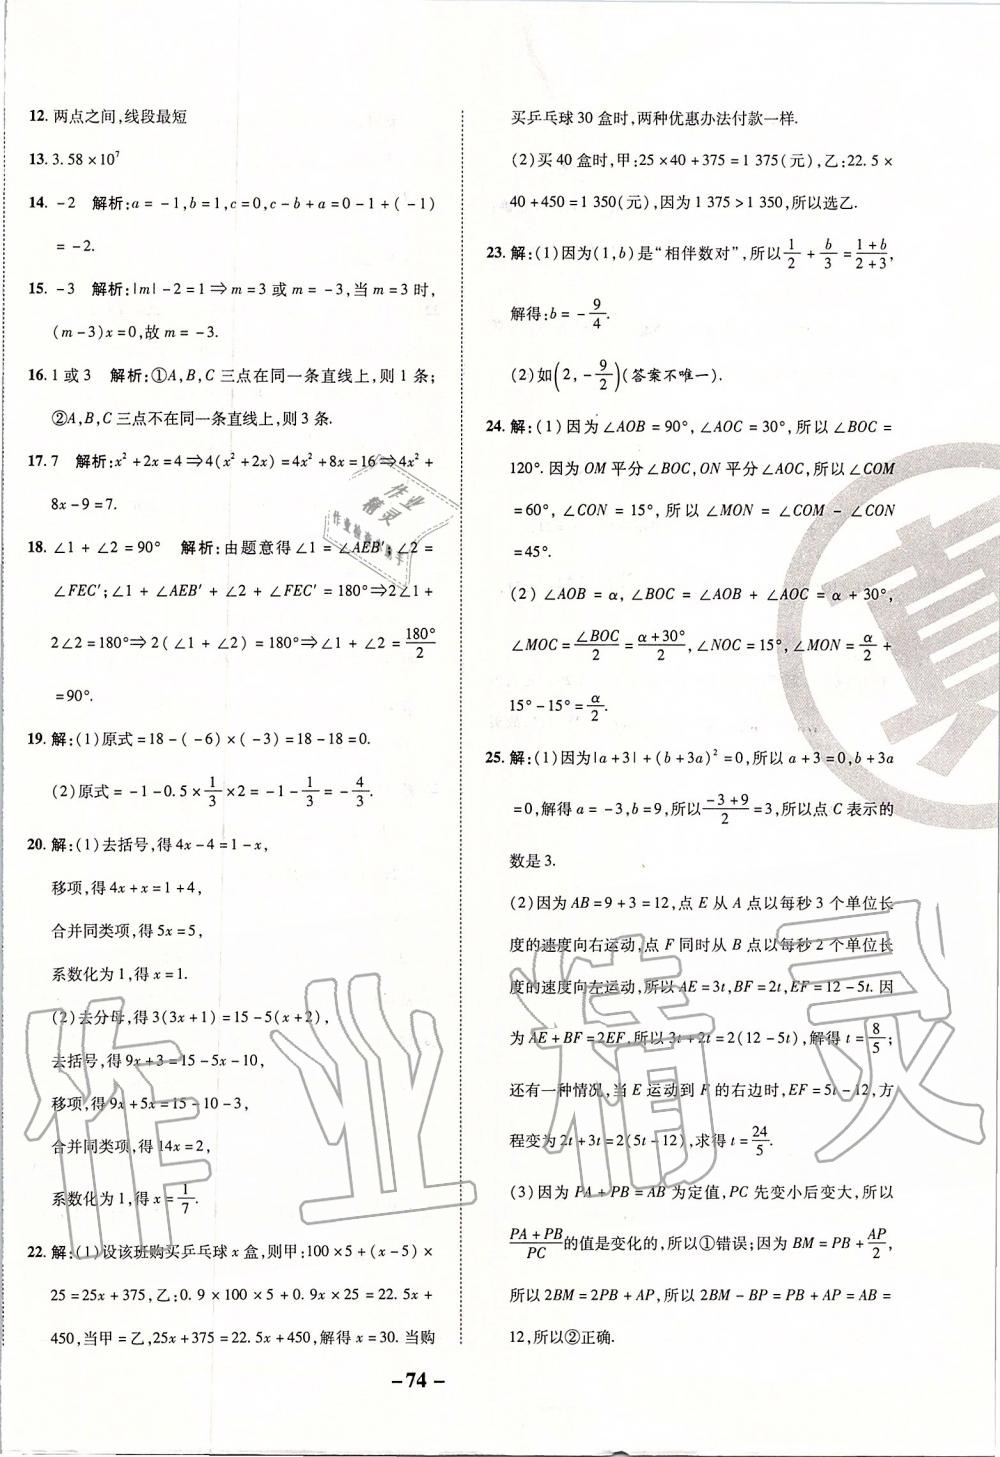 12. 两点之间,线段最短
13. 3.58×10⁷
14. -2 解析:a=-1,b=1,c=0,c-b+a=0-1+(-1)
=-2.
15. -3 解析:|m|-2=1⇒m=3或m=-3,当m=3时,
(m-3)x=0,故m=-3.
16. 1或3 解析:①A,B,C三点在同一条直线上,则1条;
②A,B,C三点不在同一条直线上,则3条.
17. 7 解析:x²+2x=4⇒4(x²+2x)=4x²+8x=16⇒4x²+
8x-9=7.
18. ∠1+∠2=90° 解析:由题意得∠1=∠AEB′;∠2=
∠FEC′;∠1+∠AEB′+∠2+∠FEC′=180°⇒2∠1+
2∠2=180°⇒2(∠1+∠2)=180°⇒∠1+∠2=180°/2
=90°.
19. 解:(1)原式=18-(-6)×(-3)=18-18=0.
(2)原式=-1-0.5×1/3×2=-1-1/3=-4/3.
20. 解:(1)去括号,得4x-4=1-x,
移项,得4x+x=1+4,
合并同类项,得5x=5,
系数化为1,得x=1.
(2)去分母,得3(3x+1)=15-5(x+2),
去括号,得9x+3=15-5x-10,
移项,得9x+5x=15-10-3,
合并同类项,得14x=2,
系数化为1,得x=1/7.
22. 解:(1)设该班购买乒乓球x盒,则甲:100×5+(x-5)×
25=25x+375,乙:0.9×100×5+0.9x×25=22.5x+
450,当甲=乙,25x+375=22.5x+450,解得x=30.当购
买乒乓球30盒时,两种优惠办法付款一样.
(2)买40盒时,甲:25×40+375=1 375(元),乙:22.5×
40+450=1 350(元),因为1 375>1 350,所以选乙.
23. 解:(1)因为(1,b)是“相伴数对”,所以1/2+b/3=(1+b)/(2+3),
解得:b=-9/4.
(2)如(2,-9/2)(答案不唯一).
24. 解:(1)因为∠AOB=90°,∠AOC=30°,所以∠BOC=
120°.因为OM平分∠BOC,ON平分∠AOC,所以∠COM
=60°,∠CON=15°,所以∠MON=∠COM-∠CON
=45°.
(2)∠AOB=α,∠BOC=∠AOB+∠AOC=α+30°,
∠MOC=∠BOC/2=(α+30°)/2,∠NOC=15°,∠MON=α/2+
15°-15°=α/2.
25. 解:(1)因为|a+3|+(b+3a)²=0,所以a+3=0,b+3a
=0,解得a=-3,b=9,所以(-3+9)/2=3,所以点C表示的
数是3.
(2)因为AB=9+3=12,点E从A点以每秒3个单位长
度的速度向右运动,点F同时从B点以每秒2个单位长
度的速度向左运动,所以AE=3t,BF=2t,EF=12-5t.因
为AE+BF=2EF,所以3t+2t=2(12-5t),解得t=8/5;
还有一种情况,当E运动到F的右边时,EF=5t-12,方
程变为2t+3t=2(5t-12),求得t=24/5.
(3)因为PA+PB=AB为定值,PC先变小后变大,所以
(PA+PB)/PC的值是变化的,所以①错误;因为BM=PB+AP/2,
所以2BM=2PB+AP,所以2BM-BP=PB+AP=AB=
12,所以②正确.
-74-
作业精灵
真
作业
精灵